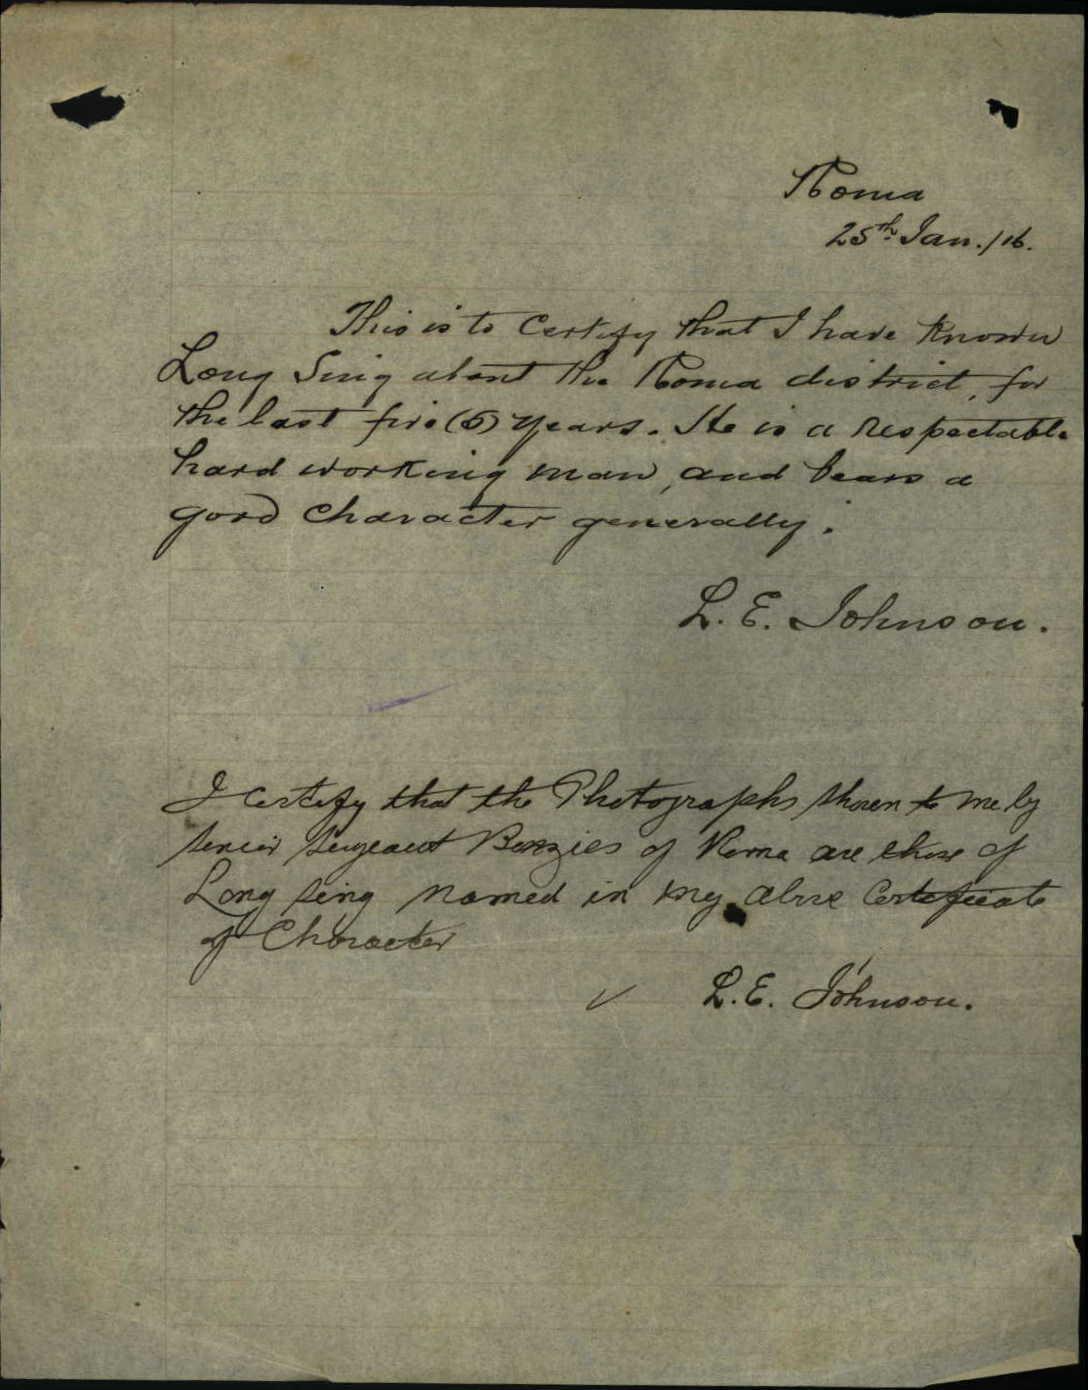 Roma
25th Jan./16.
This is to Certify that I have Known
Long Sing about the Roma district, for
the last five (5) years. He is a Respectable
hard working man, and bears a
good Character generally.
L. E. Johnson.
I certify that the Photographs shown to me by
Senior Sergeant Benzies of Roma are those of
Long Sing named in my above Certificate
of Character
L. E. Johnson.